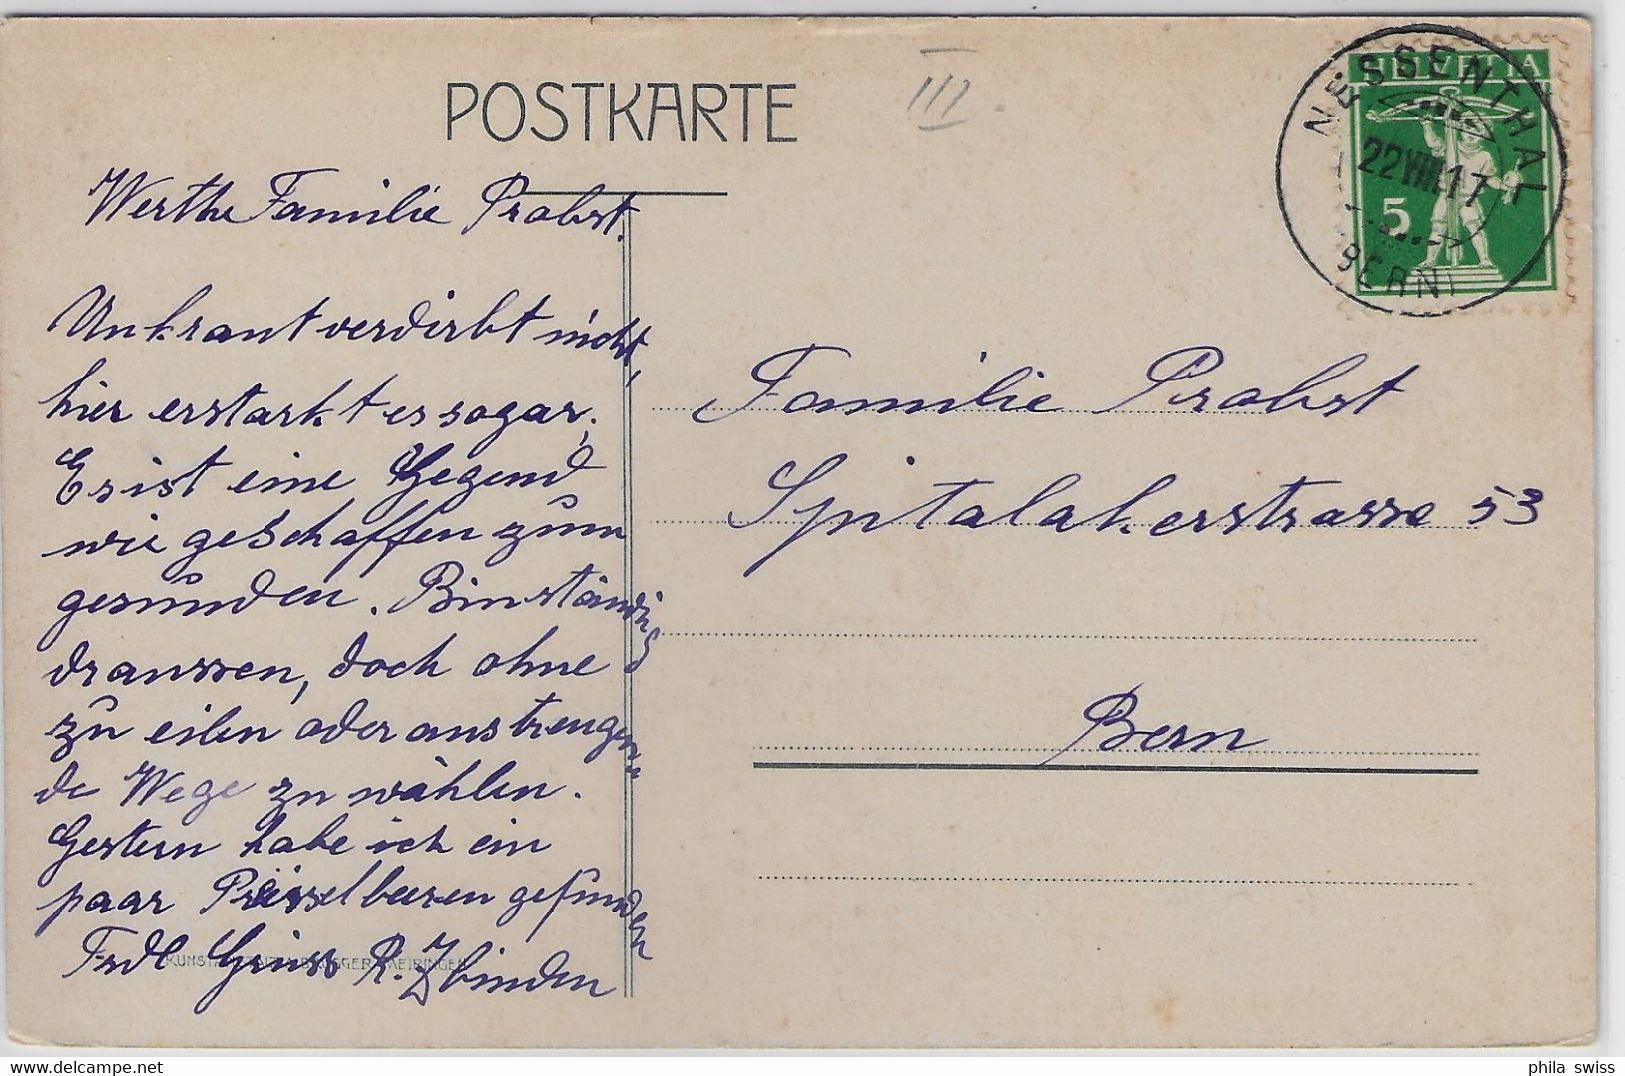 POSTKARTE
III
HELVETIA
5
NESSENTHAL
22.VIII.17
(BERN)
Werthe Familie Probst.
Unkraut verdirbt nicht,
hier erstarkt es sogar,
Es ist eine Gegend
wie geschaffen zum
gesunden. Bin ständig
draussen, doch ohne
zu eilen oder anstrengen-
de Wege zu wählen.
Gestern habe ich ein
paar Preisselbeeren gefunden
Frdl Gruss R. Zbinden
KUNSTANSTALT BRÜGGER MEIRINGEN
Familie Probst
Spitalakerstrasse 53
Bern
phila swiss